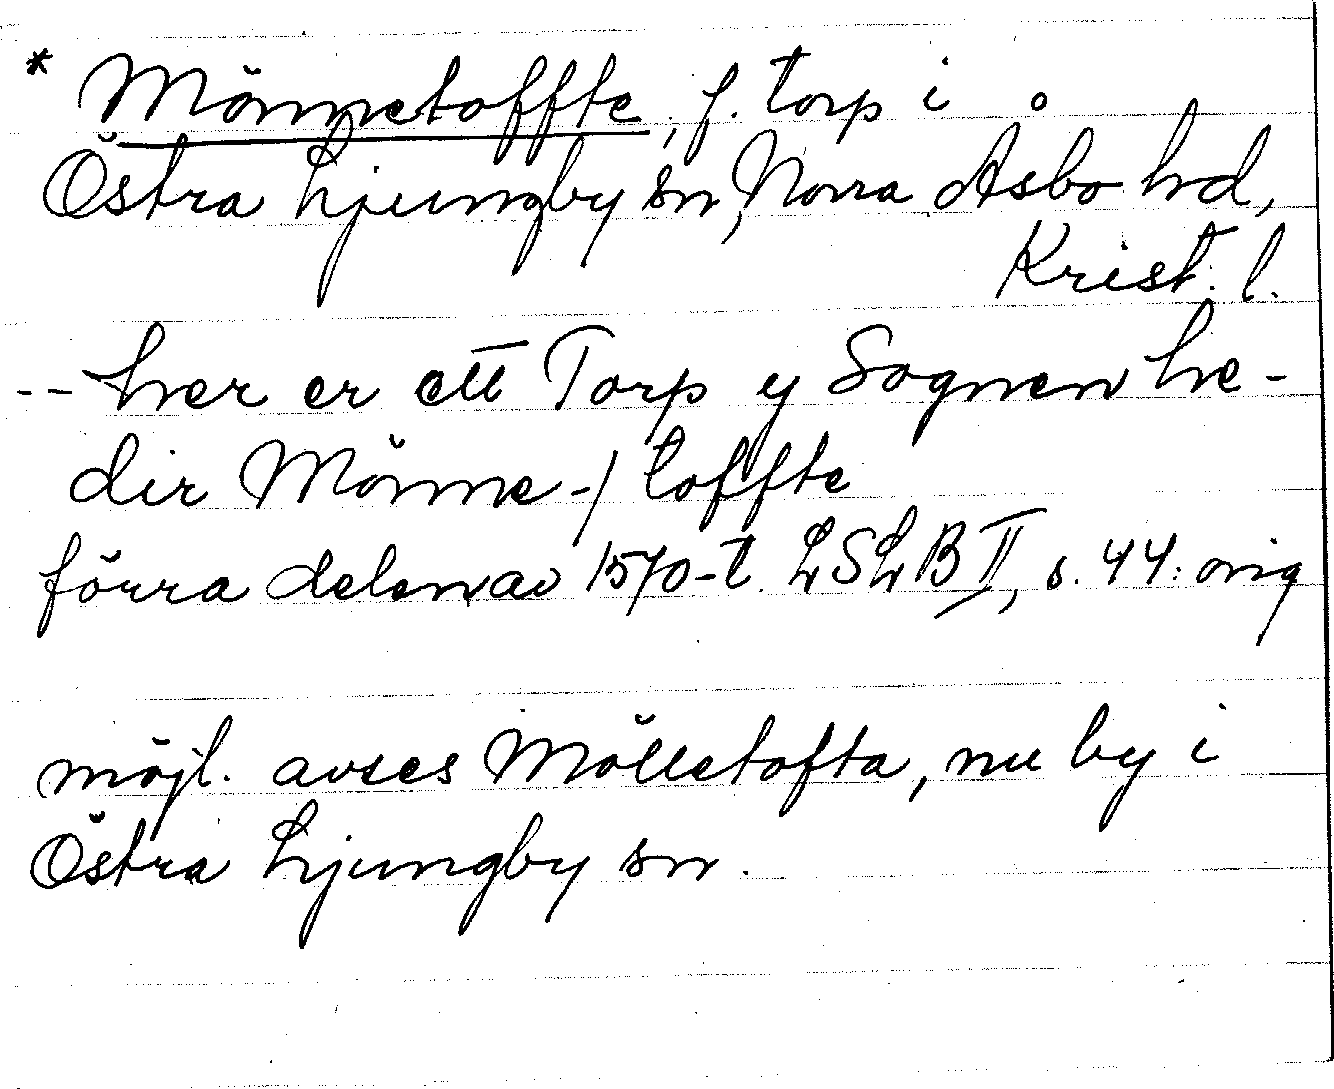 * Mönnetoffte, f. torp i
Östra Ljungby sn, Norra Åsbo hd,
Krist. l.
-- her er ett Torp y Sognen he-
dir Mönne-/ toffte
förra delen av 1570-t. LSLB II, s. 44: orig
möjl. avses Mölletofta, nu by i
Östra Ljungby sn.